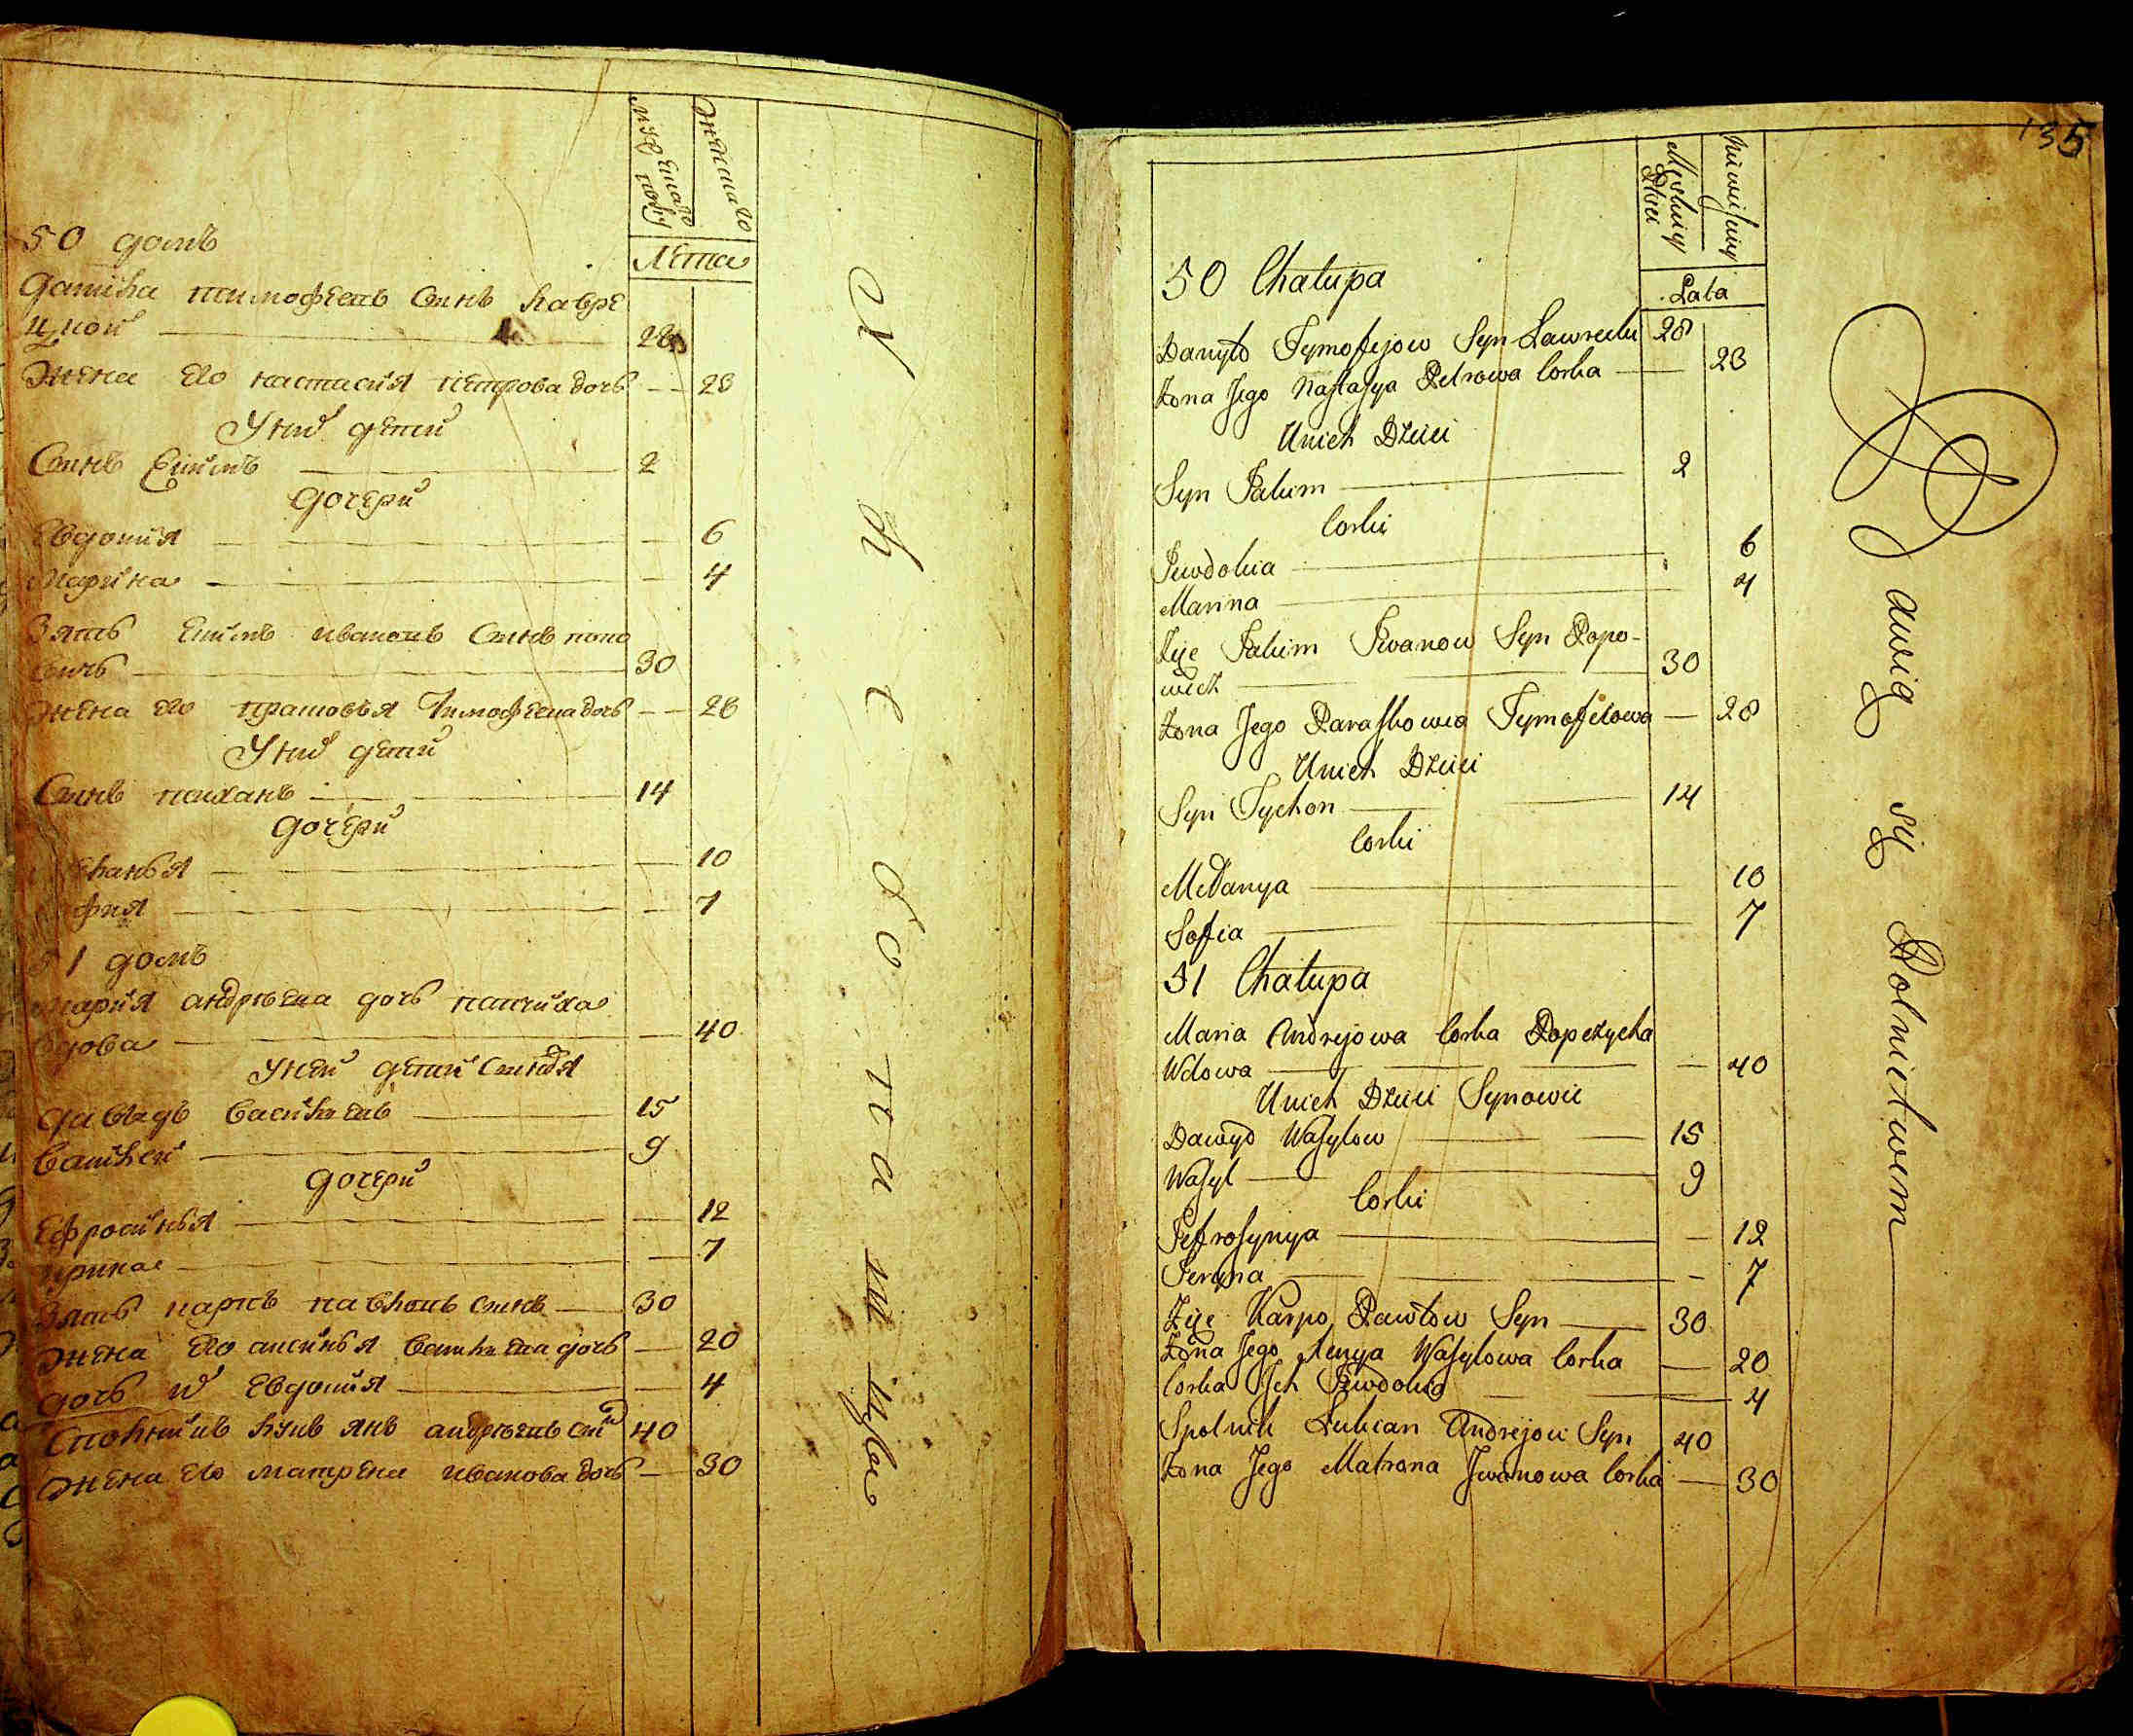 мужеска
полу
женскаго
Лета
50 домъ
данила тимофеевъ сынъ лавре
цкой 28
жена его настасия петрова дочь 23
У них дети
Сынъ Екимъ 2
дочери
Евдокия 6
Марина 4
Зять Екимъ ивановъ Сынъ попо
вичъ 30
жена его прасковья тимофеева дочь 28
У них дети
Сынъ тихонъ 14
дочери
10
7
51 домъ
мария андреева дочь
вдова 40
У ней дети Сыновья
давидъ васильевъ 15
василей 9
дочери
Ефросинья 12
ирина 7
Зять карпъ павловъ сынъ 30
жена его аксинья васильева дочь 20
дочь их Евдокия 4
40
жена его матрена иванова дочь 30
135
Męskiey
Płci
Niewieściey
Lata
50 Chałupa
Danyło Tymofejow Syn Ławrecki 28
Żona Jego Nastasya Petrowa Corka 23
Unich Dzieci
Syn Jakim 2
Corki
Jewdokia 6
Marina 4
Zięc Jakim Iwanow Syn Popo-
wicz 30
Żona Jego Paraskowia Tymofeiowa 28
Unich Dzieci
Syn Tychon 14
Corki
Mełanya 10
Sofia 7
51 Chałupa
Maria Andrejowa Corka Popczycha
Wdowa 40
Unich Dzieci Synowie
Dawyd Wasylow 15
Wasyl 9
Corki
Jefrosynya 12
Jeryna 7
Zięc Karpo Pawłow Syn 30
Żona Jego Xenya Wasylowa Corka 20
Corka Ich Jewdokia 4
Społnik Łukian Andrejow Syn 40
Żona Jego Matrona Iwanowa Corka 30
Bawią się Rolnictwem